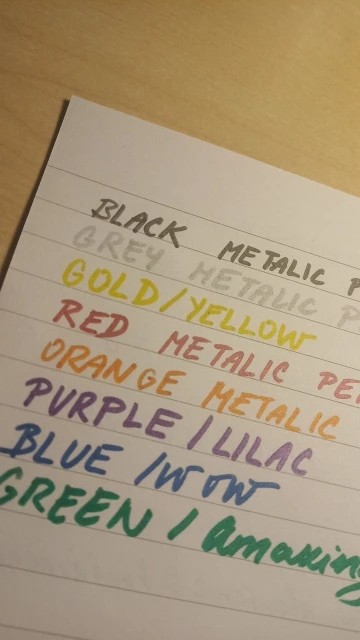 BLACK METALIC P
GREY METALIC P
GOLD/YELLOW
RED METALIC PE
ORANGE METALIC
PURPLE / LILAC
BLUE /WOW
GREEN / amaking